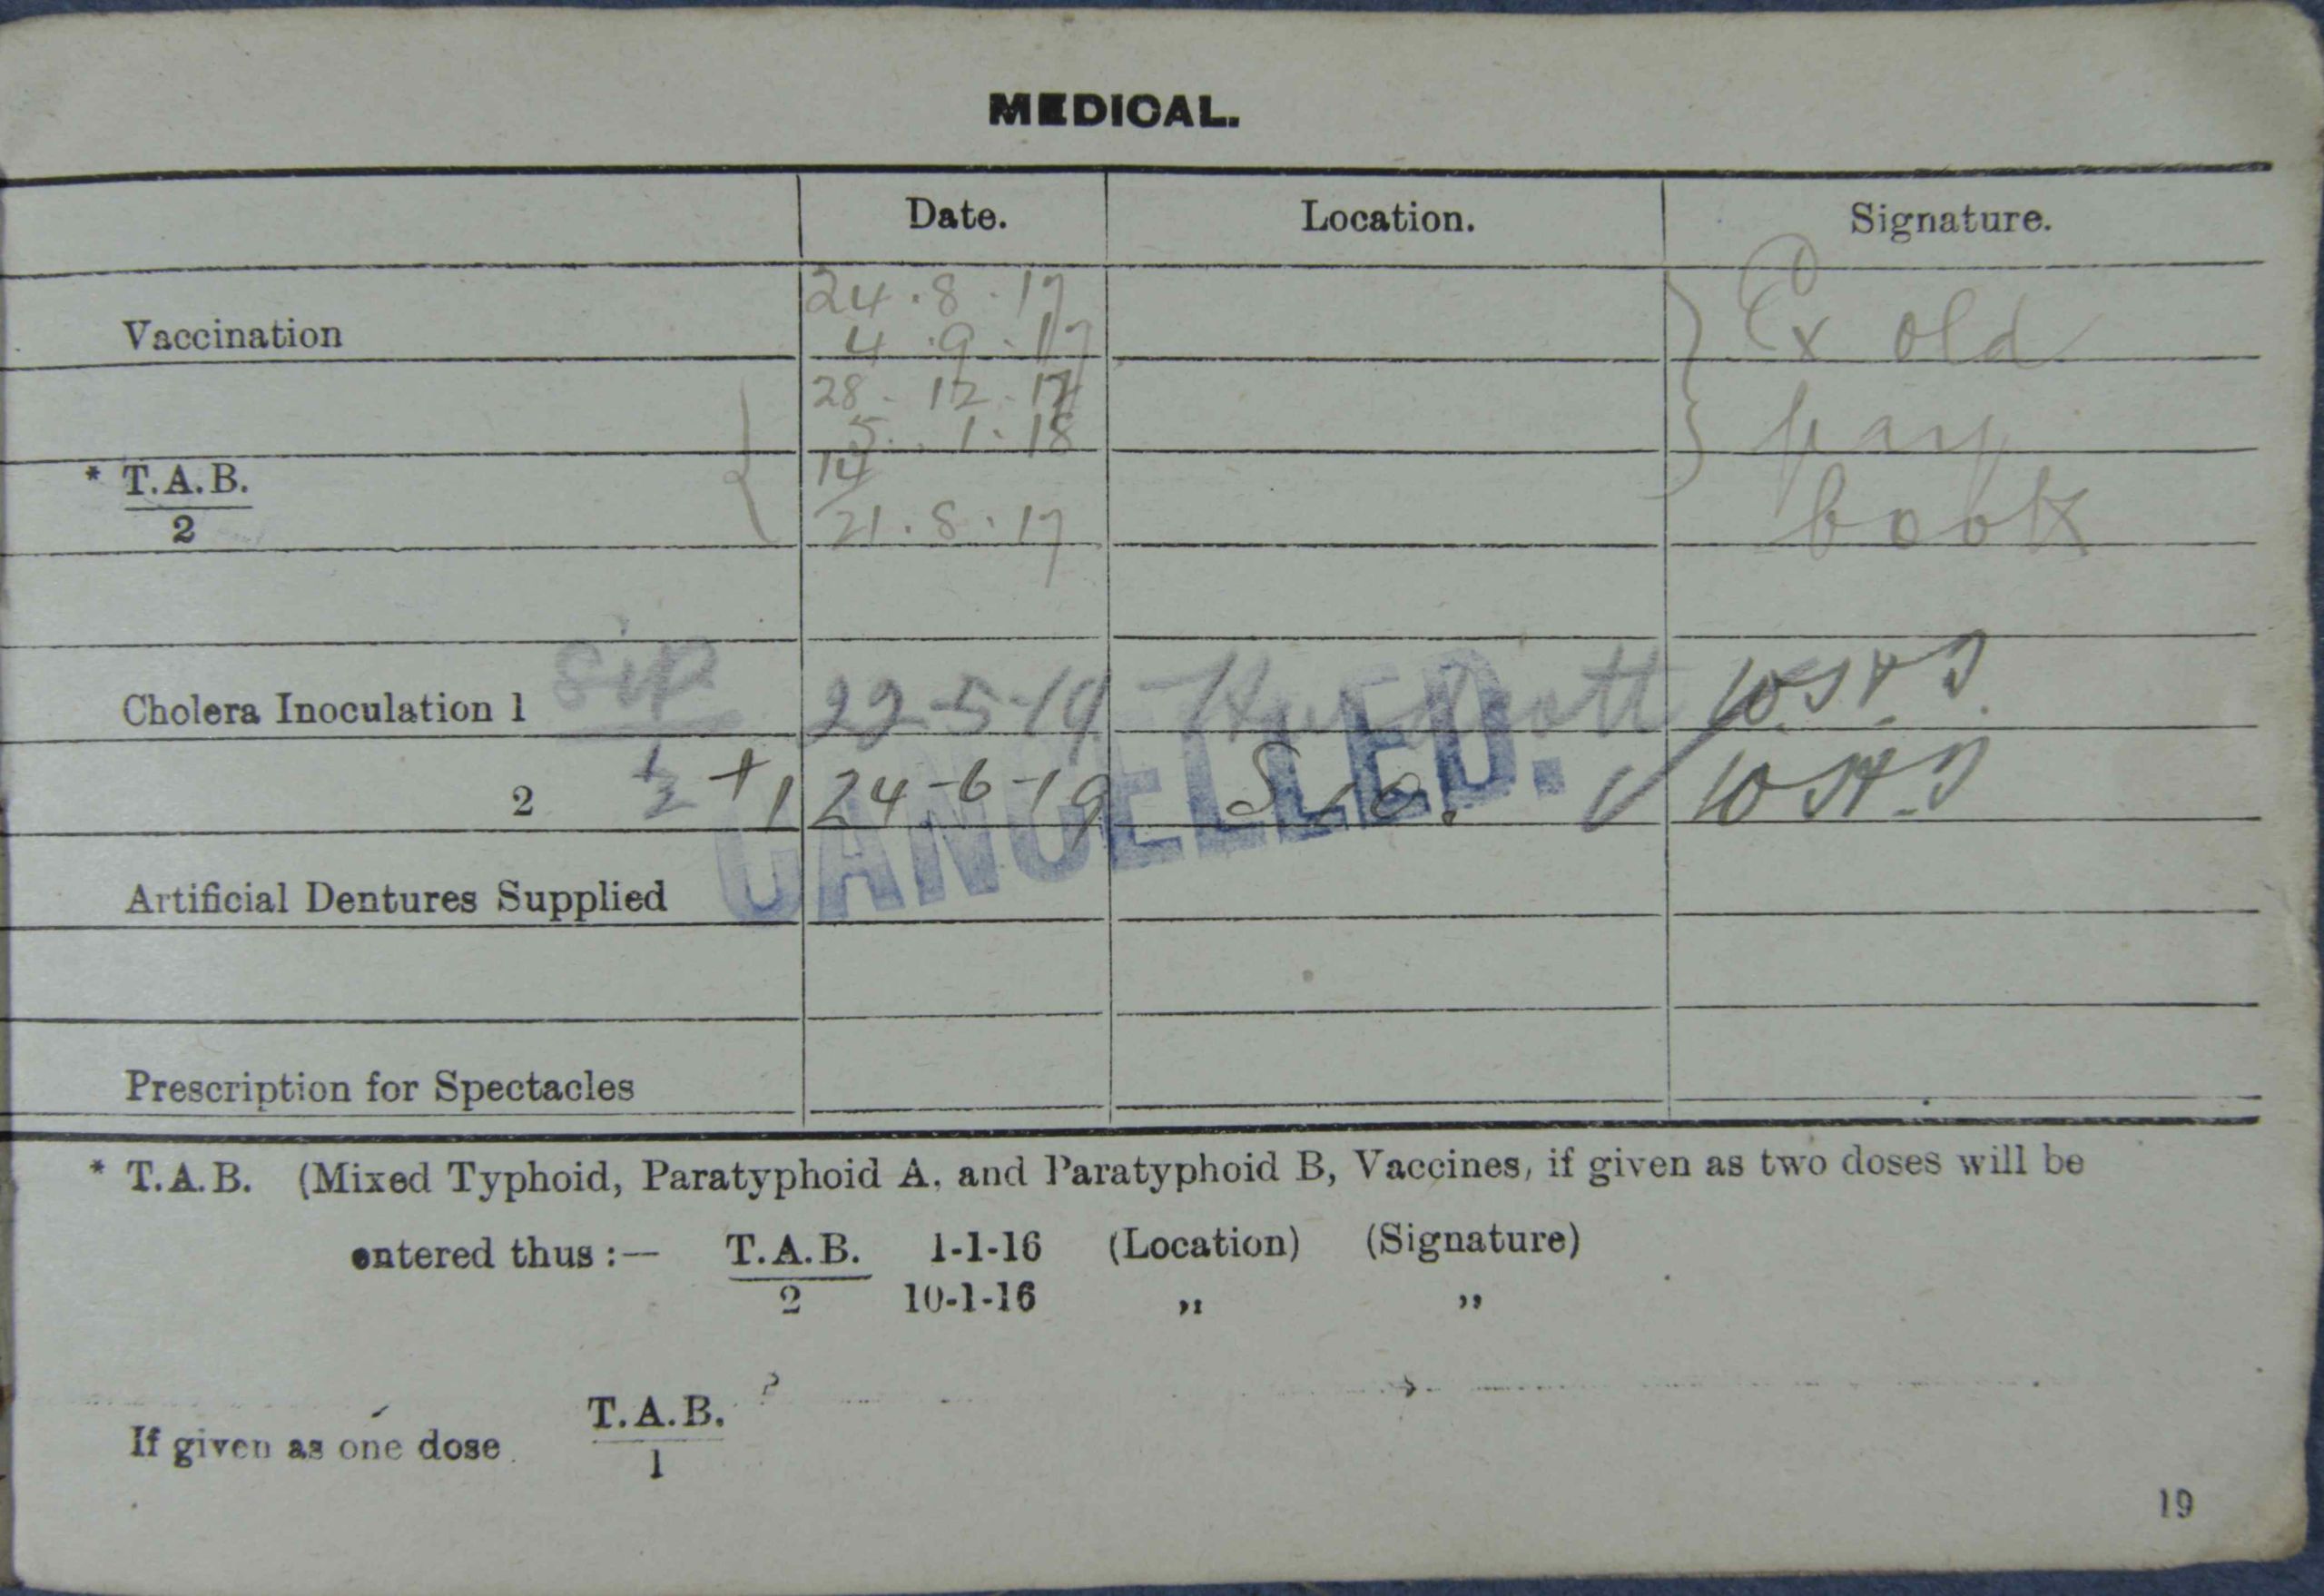 MEDICAL.
Date. Location. Signature.
24.8.17
Vaccination 4.9.17 Ex old
28-12-17
5.1.18 pay
* T.A.B. 14
2 21.8.17 book
Cholera Inoculation 1 22-5-19 Hurdcott
2 1/2 + 1 24-6-19
CANCELLED.
Artificial Dentures Supplied
Prescription for Spectacles
* T.A.B. (Mixed Typhoid, Paratyphoid A, and Paratyphoid B, Vaccines, if given as two doses will be
entered thus :— T.A.B. 1-1-16 (Location) (Signature)
2 10-1-16 ,, ,,
If given as one dose T.A.B.
1
19